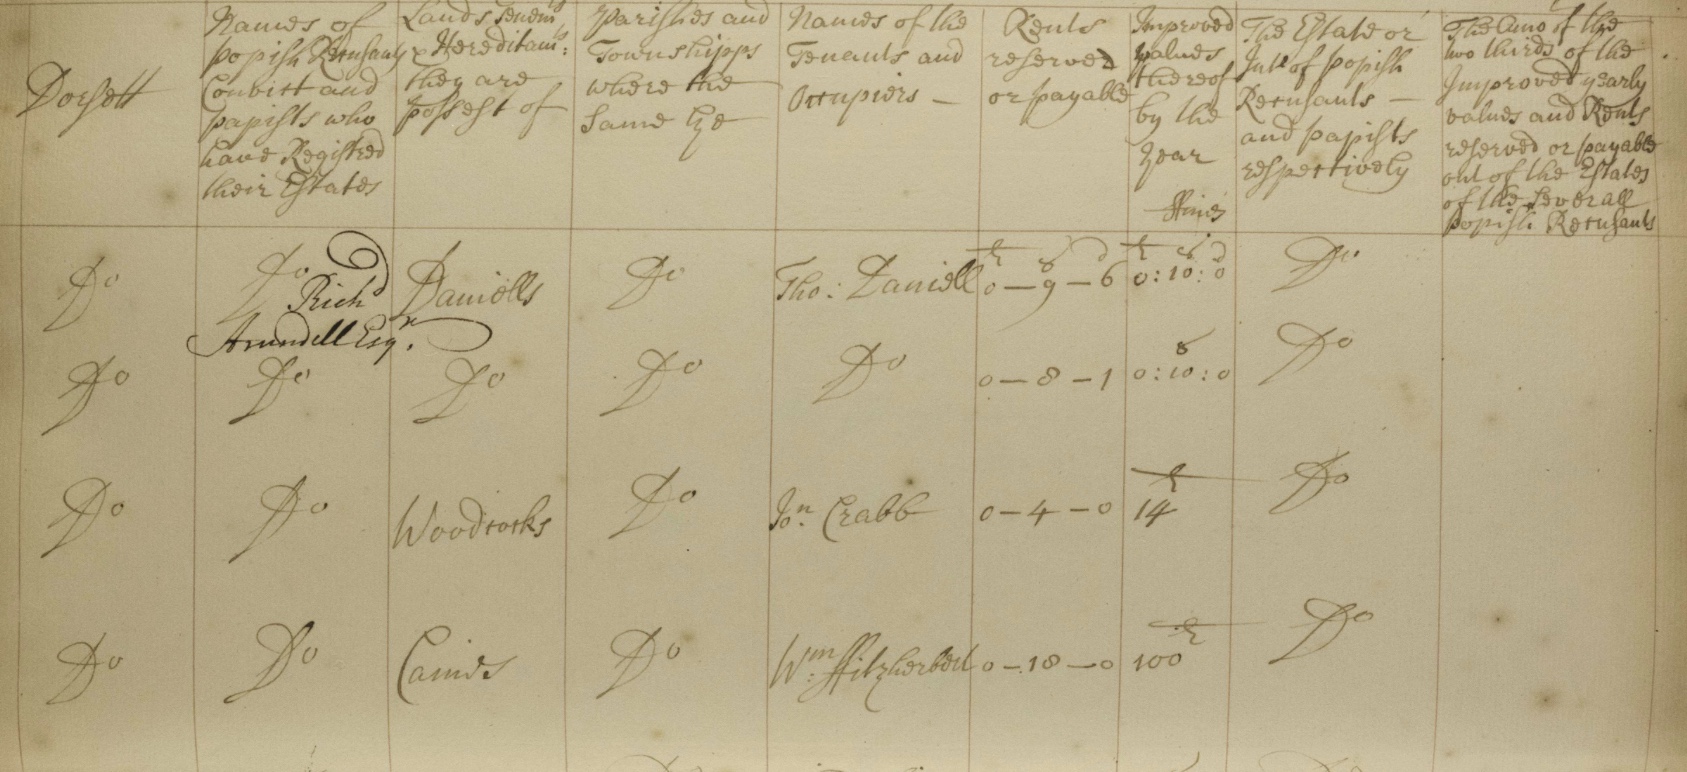 Dorsett
Names of
popish Recusants
Convict and
papists who
have Registred
their Estates
Lands Tenemts
& Hereditamts:
they are
possest of
Parishes and
Townshipps
where the
same lye
Names of the
Tenants and
Occupiers —
Rents
reserved
or payable
Improved
values
thereof
by the
year
ffines
The Estate or
Intt of popish
Recusants —
and papists
respectively
The Amo of the
two thirds of the
Improved yearly
values and Rents
reserved or payable
out of the Estates
of the severall
popish Recusants
Do Do Richd Daniells Do Tho: Daniell 0 — 9 — 6 0:10:0 Do
Arundell Esqr.
Do Do Do Do Do 0 — 8 — 1 0:10:0 Do
Do Do Woodcocks Do Jon. Crabb 0 — 4 — 0 14 Do
Do Do Caines Do Wm: ffitzherbert 0 — 18 — 0 100 Do